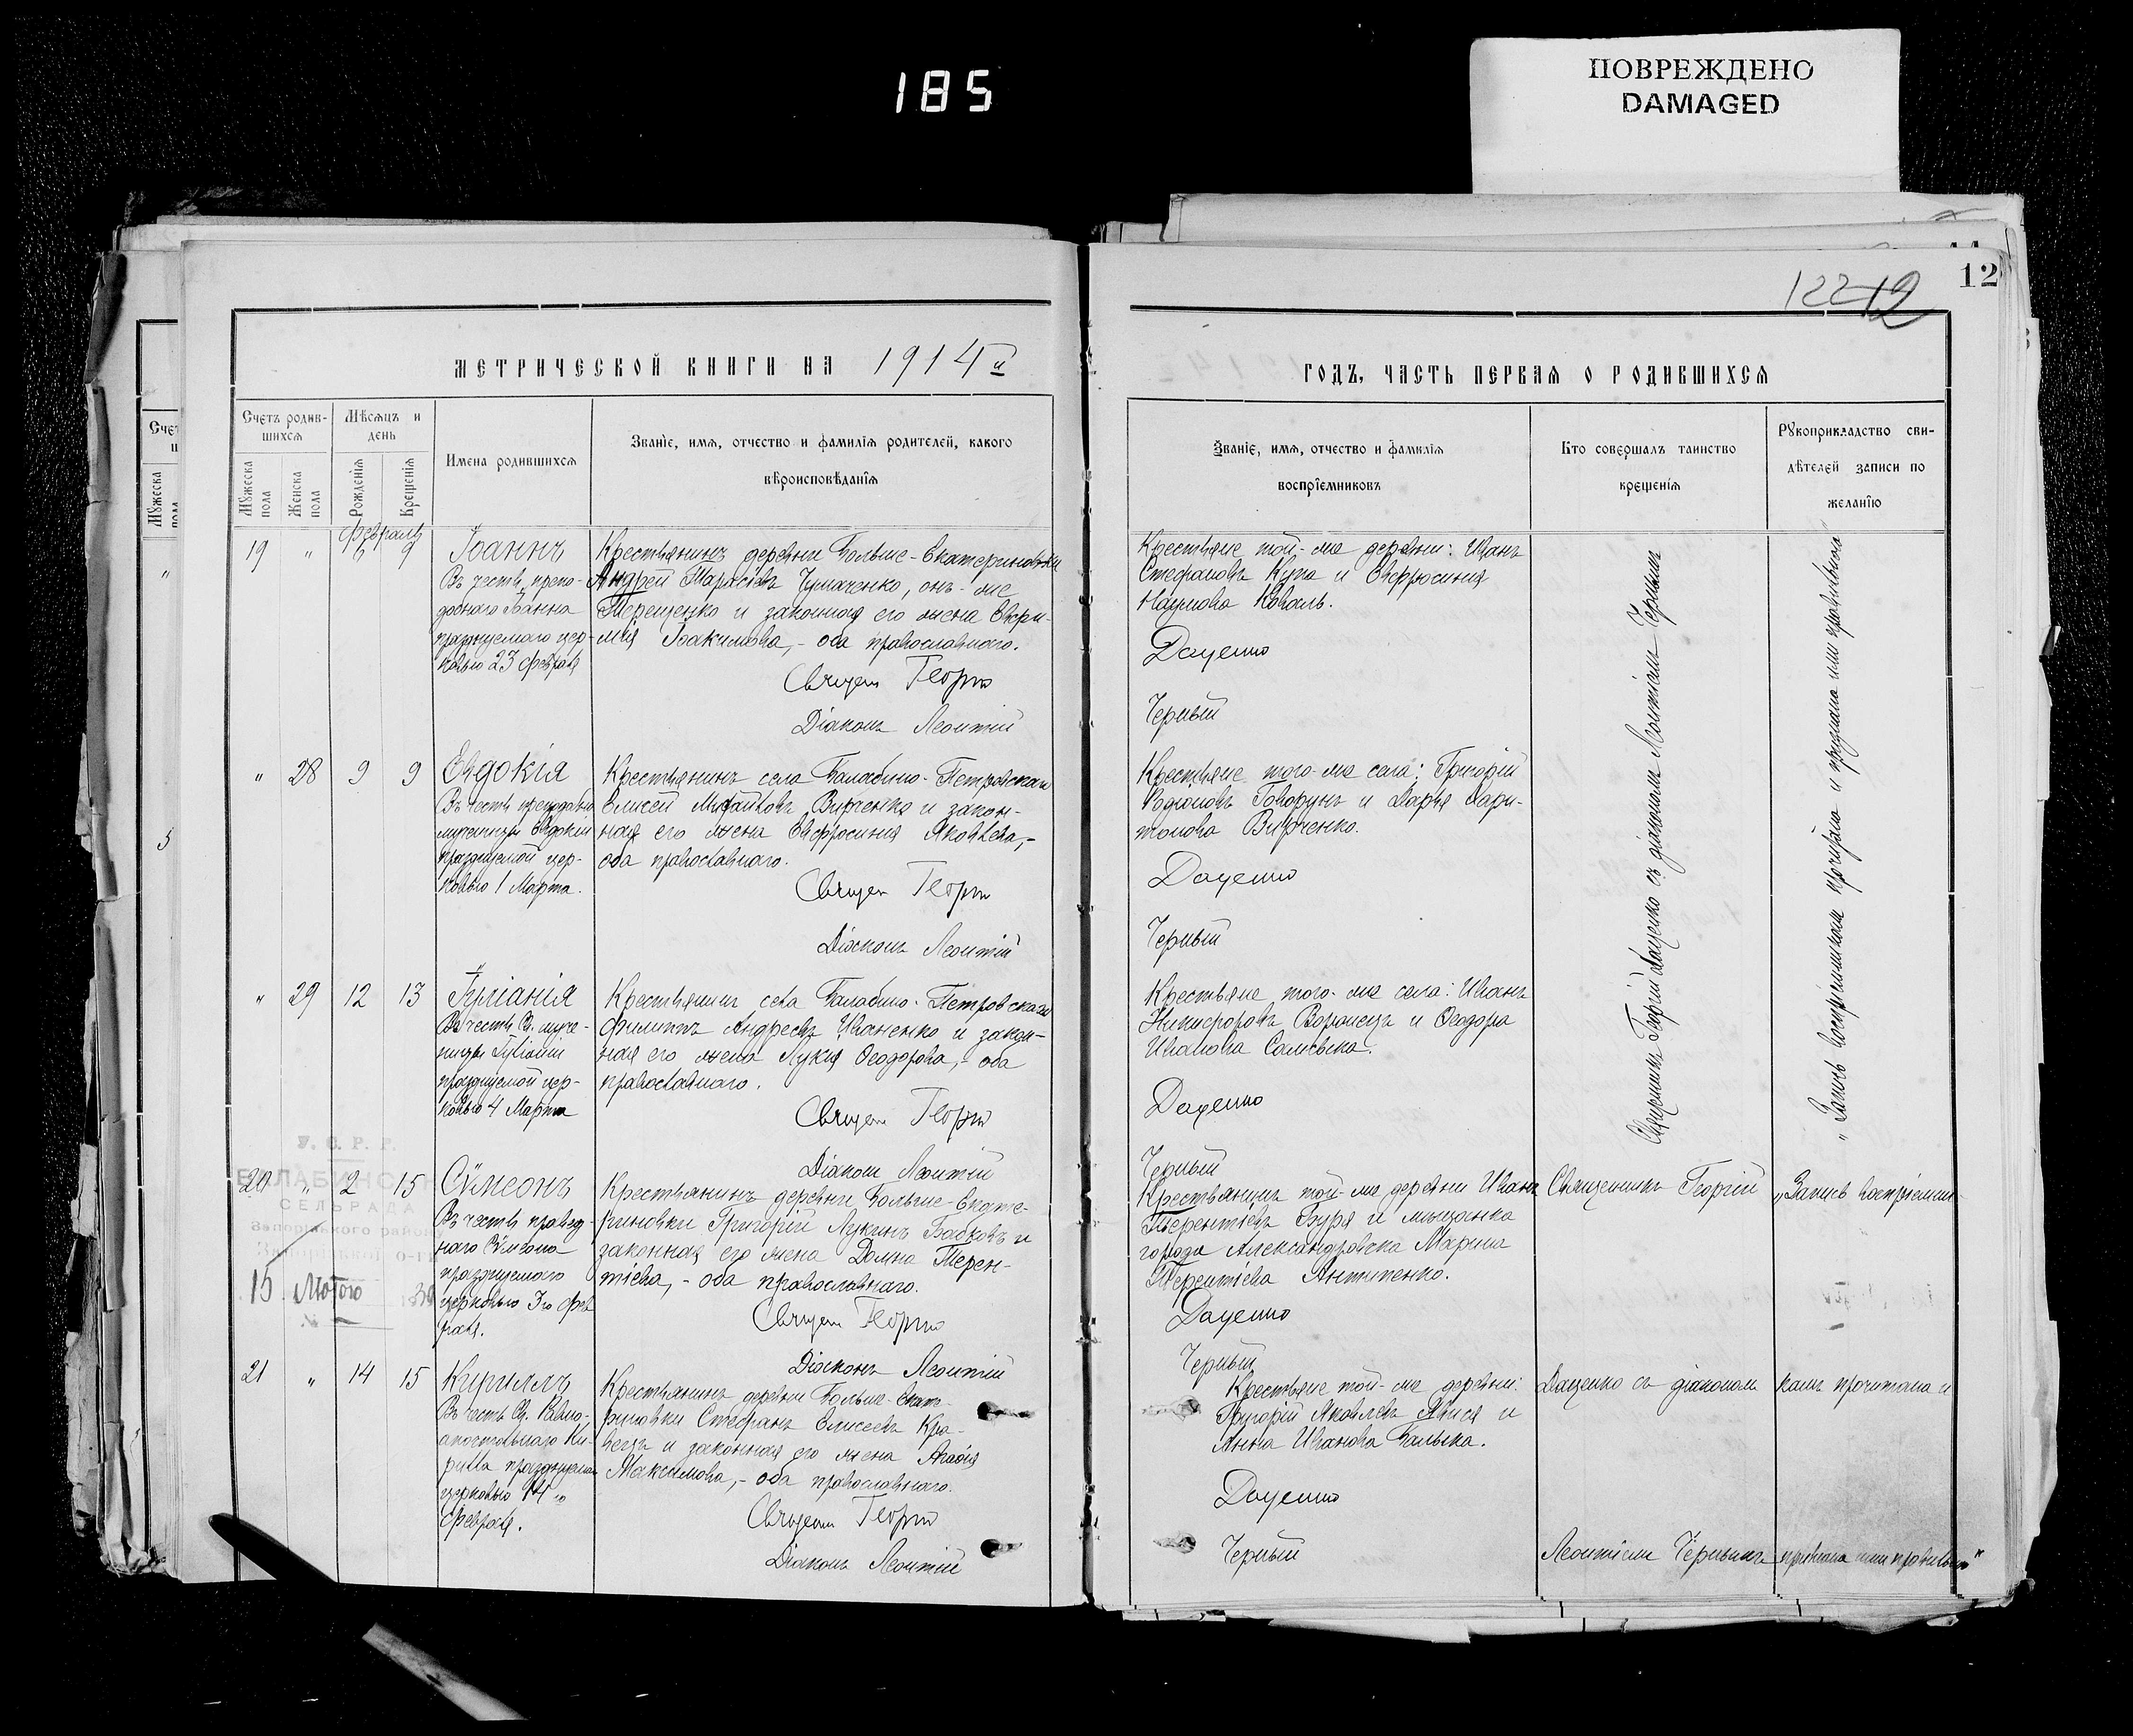 185
ПОВРЕЖДЕНО
DAMAGED
12
122 12
МЕТРИЧЕСКОЙ КНИГИ НА 1914й
Счетъ родив-
шихся
Мужеска
пола
Женска
пола
Мѣсяцъ и
день
Рожденія
Крещенія
Имена родившихся
Званіе, имя, отчество и фамилія родителей, какого
вѣроисповѣданія
Февраль
19 " 6 9
Іоаннъ
Въ честь препо-
добнаго Іоанна
празднуемаго цер-
ковью 23 февраля
Крестьянинъ деревни Больше-Екатериновки
Андрей Тарасіевъ Чумаченко, онъ-же
Терещенко и законная его жена Евфи-
мія Іоакимова, - оба православнаго.
Священ Георгій
Діаконъ Леонтій
" 28 9 9
Евдокія
Въ честь преподобно
мученицы Евдокіи
празднуемой цер-
ковью 1 Марта.
Крестьянинъ села Балабино-Петровскаго
Елисей Михайловъ Вирченко и закон-
ная его жена Евфросинія Яковлева, -
оба православнаго.
Священ Георгій
Діаконъ Леонтій
" 29 12 13
Іуліанія
Въ честь Св. муче-
ницы Іуліаніи
празднуемой цер-
ковью 4 Марта
Крестьянинъ села Балабино-Петровскаго
Филиппъ Андреевъ Иваненко и закон-
ная его жена Лукія Ѳеодорова, - оба
православнаго.
Священ Георгій
Діаконъ Леонтій
У. С. Р. Р.
БАЛАБИНСЬКА
СЕЛЬРАДА
Запорізького району
15 Лютого
№
20 " 2 15
Сѵмеонъ
Въ честь правед-
наго Сѵмеона
празднуемаго
церковью 3го фев
раля.
Крестьянинъ деревни Больше-Екате-
риновки Григорій Лукинъ Бабковъ и
законная его жена Домна Терен-
тіева, - оба православнаго.
Священ Георгій
Діаконъ Леонтій
21 " 14 15
Кириллъ
Въ честь Св. Равно-
апостольнаго Ки-
рилла празднуемаго
церковью 14го
февраля.
Крестьянинъ деревни Больше-Екате-
риновки Стефанъ Елисеевъ Кра-
вецъ и законная его жена Агаѳія
Максимова, - оба православнаго.
Священ Георгій
Діаконъ Леонтій
ГОДЪ, ЧАСТЬ ПЕРВАЯ О РОДИВШИХСЯ
Званіе, имя, отчество и фамилія
воспріемниковъ
Кто совершалъ таинство
крещенія
Рукоприкладство сви-
дѣтелей записи по
желанію
Крестьяне той-же деревни: Иванъ
Стефановъ Купа и Евфросинія
Наумова Коваль.
Даценко
Черный
Крестьяне того-же села: Григорій
Родіоновъ Говорунъ и Дарья Хари-
тонова Вирченко.
Даценко
Черный
Крестьяне того-же села: Иванъ
Никифоровъ Воронецъ и Ѳеодора
Иванова
Даценко
Черный
Священникъ Георгій Даценко съ діакономъ Леонтіемъ Чернымъ
"Запись воспріемникамъ прочитана и признана ими правильной"
Крестьянинъ той-же деревни Иванъ
Терентіевъ Буря и мѣщанка
города Александровска Марина
Терентіева Антипенко.
Даценко
Черный
Крестьяне той-же деревни:
Григорій Яковлевъ и
Анна Иванова Балыка.
Даценко
Черный
Священникъ Георгій
Даценко съ діакономъ
Леонтіемъ Чернымъ
"Запись воспріемни-
камъ прочитана и
признана ими правильной"